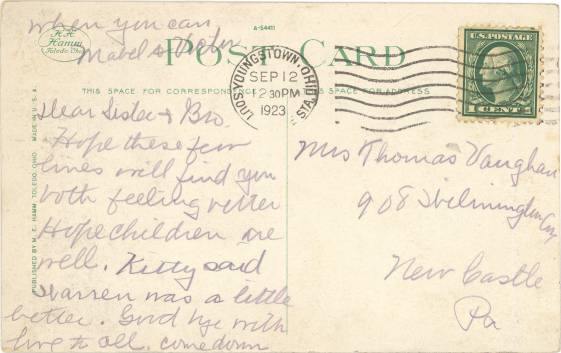 when you can,
Mabel & Victor
H.H.
Hamm
Toledo Ohio
A-54411
POST CARD
THIS SPACE FOR CORRESPONDENCE
THIS SPACE FOR ADDRESS
YOUNGSTOWN, OHIO
SEP 12
12 30 PM
1923
STA.
U.S. POSTAGE
1 CENT 1
Dear Sister & Bro
Hope these few
lines will find you
both feeling better
Hope children are
well. Kitty said
Warren was a little
better. Good bye with
love to all. come down
Mrs Thomas Vaughan
908 Wilmington
New Castle
Pa
PUBLISHED BY H. H. HAMM, TOLEDO, OHIO
MADE IN U.S.A.